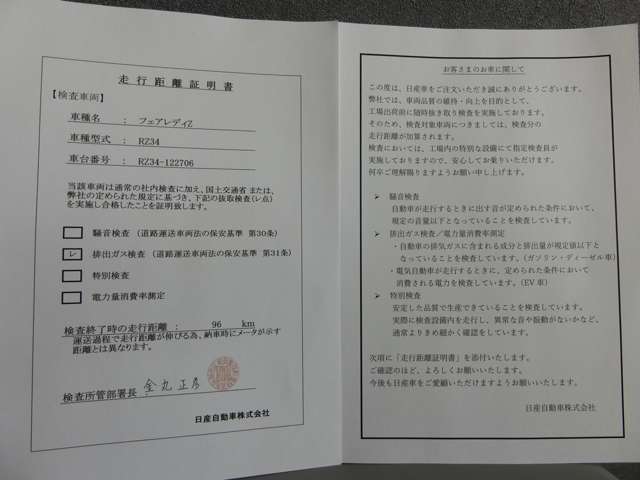 走行距離証明書
【検査車両】
車種名 : フェアレディZ
車種型式 : RZ34
車台番号 : RZ34-122706
当該車両は通常の社内検査に加え、国土交通省または、
弊社の定められた規定に基づき、下記の抜取検査(レ点)
を実施し合格したことを証明致します。
騒音検査 (道路運送車両法の保安基準 第30条)
レ 排出ガス検査 (道路運送車両法の保安基準 第31条)
特別検査
電力量消費率測定
検査終了時の走行距離 : 96 km
運送過程で走行距離が伸びる為、納車時にメータが示す
距離とは異なります。
検査所管部署長 金丸正彦
日産自動車株式会社
お客さまのお車に関して
この度は、日産車をご注文いただき誠にありがとうございます。
弊社では、車両品質の維持・向上を目的として、
工場出荷前に随時抜き取り検査を実施しております。
そのため、検査対象車両につきましては、検査分の
走行距離が加算されます。
検査においては、工場内の特別な設備にて指定検査員が
実施しておりますので、安心してお乗りいただけます。
何卒ご理解賜りますようお願い申し上げます。
➢ 騒音検査
自動車が走行するときに出す音が定められた条件において、
規定の音量以下となっていることを検査しています。
➢ 排出ガス検査／電力量消費率測定
・自動車の排気ガスに含まれる成分と排出量が規定値以下と
なっていることを検査しています。(ガソリン・ディーゼル車)
・電気自動車が走行するときに、定められた条件において
消費される電力を検査しています。(EV車)
➢ 特別検査
安定した品質で生産できていることを検査しています。
実際に検査設備内を走行し、異常な音や振動がないかなど、
通常よりきめ細かく確認をしています。
次項に「走行距離証明書」を添付いたします。
ご確認のほど、よろしくお願いいたします。
今後も日産車をご愛顧いただけますようお願いいたします。
日産自動車株式会社